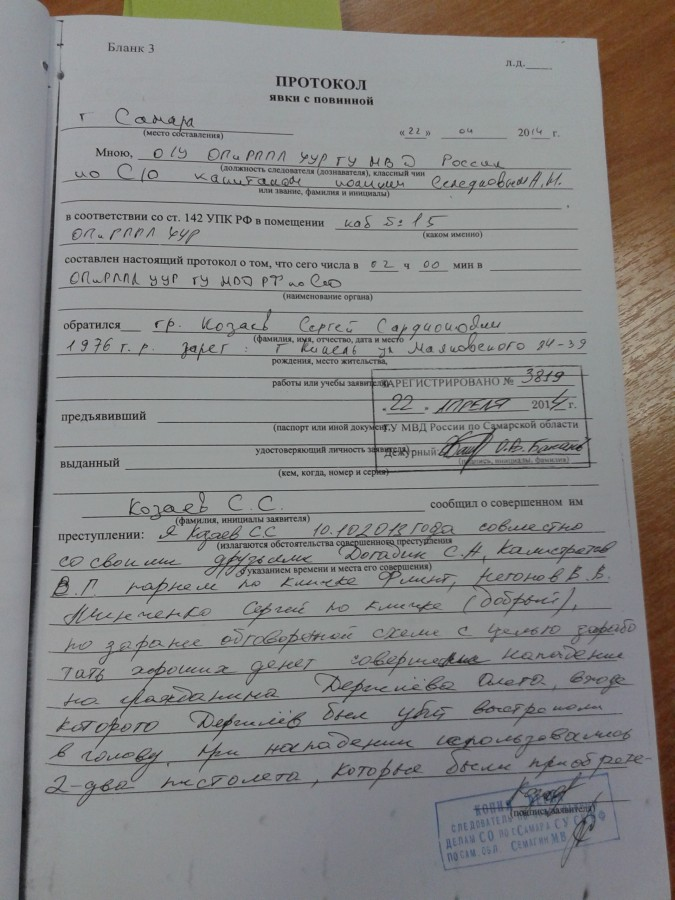 Бланк 3
л.д.
ПРОТОКОЛ
явки с повинной
г Самара
(место составления)
«22» 04 2014 г.
Мною, О/У ОПиРППЛ УУР ГУ МВД России
(должность следователя (дознавателя), классный чин
по С/О капитаном полиции А.И.
или звание, фамилия и инициалы)
в соответствии со ст. 142 УПК РФ в помещении каб № 15
(каком именно)
ОПиРППЛ УУР
составлен настоящий протокол о том, что сего числа в 02 ч 00 мин в
ОПиРППЛ УУР ГУ МВД РФ по С/О
(наименование органа)
обратился гр. Козаев Сергей Сардионович
(фамилия, имя, отчество, дата и место
1976 г.р. зарег: г Кинель ул Маяковского 84-39
рождения, место жительства,
работы или учебы заявителя)
ЗАРЕГИСТРИРОВАНО № 3819
22 АПРЕЛЯ 2014 г.
предъявивший
(паспорт или иной документ,
ГУ МВД России по Самарской области
удостоверяющий личность заявителя)
Дежурный
(подпись, инициалы, фамилия)
выданный
(кем, когда, номер и серия)
Козаев С.С. сообщил о совершенном им
(фамилия, инициалы заявителя)
преступлении: я Козаев С.С 10.10.2013 года совместно
(излагаются обстоятельства совершенного преступления
со своими друзьями Догадин С.А, Калистратов
с указанием времени и места его совершения)
В.Г парнем по кличке Флинт, В.В.
Сергей по кличке (добрый),
по заранее обговоренной схеме с целью зарабо
тать хороших денег совершили нападение
на гражданина Дергилёва Олега, входе
которого Дергилёв был убит выстрелами
в голову, при нападении использовались
2-два пистолета, которые были приобрете-
(подпись заявителя)
КОПИЯ
СЛЕДОВАТЕЛЬ
ДЕЛАМ СО ПО г САМАРА СУ СК РФ
ПО САМ. ОБЛ. СЕМАГИН М.В.